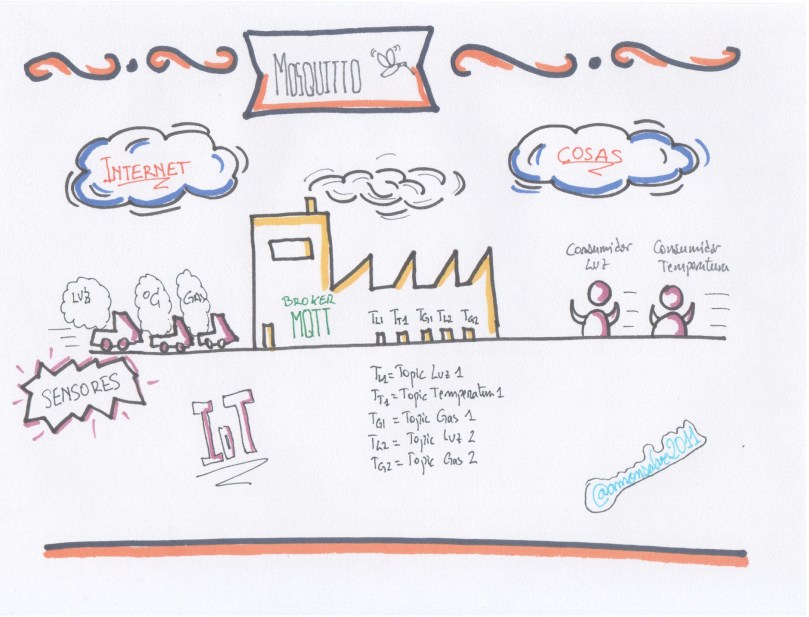 MOSQUITTO
INTERNET
COSAS
Consumidor
Luz
Consumidor
Temperatura
LUZ
ºC
GAS
BROKER
MQTT
TL1 TT1 TG1 TL2 TG2
SENSORES
IoT
TL1 = Topic Luz 1
TT1 = Topic Temperatura 1
TG1 = Topic Gas 1
TL2 = Topic Luz 2
TG2 = Topic Gas 2